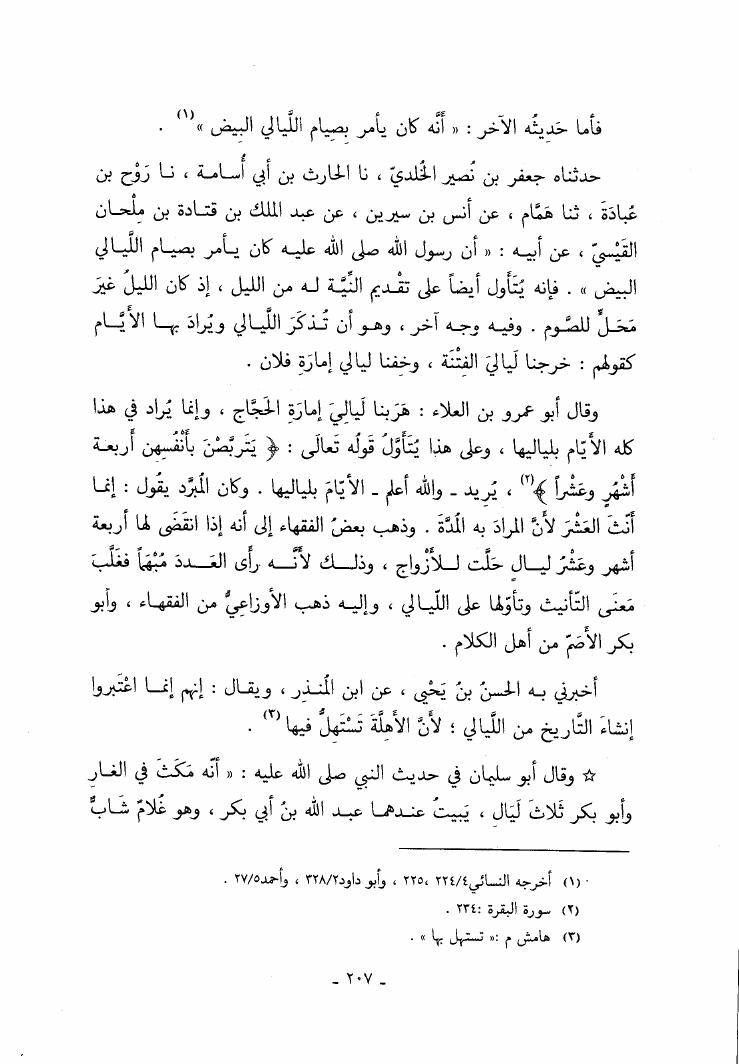 فأما حَدِيثُه الآخر : « أنَّه كان يأمر بِصِيام اللَّيالي البِيض »(١) .
حدثناه جعفر بن نُصير الخُلديّ ، نا الحارث بن أبي أُسامة ، نا رَوْح بن
عُبادَةَ ، ثنا هَمَّام ، عن أنس بن سيرين ، عن عبد الملك بن قتادة بن مِلْحان
القَيْسيّ ، عن أبيه : « أن رسول الله صلى الله عليه كان يأمر بصيام اللَّيالي
البيض » . فإنه يُتَأول أيضاً على تقْديم النِّيَّة له من الليل ، إذ كان الليلُ غيرَ
مَحَلٍّ للصَّوم . وفيه وجه آخر ، وهو أن تُذكَرَ اللَّيالي ويُرادَ بها الأيَّام
كقولهم : خرجنا لَياليَ الفِتْنَة ، وخفنا ليالي إمارَةِ فلان .
وقال أبو عمرو بن العلاء : هَرَبنا لَيالِيَ إمارَةِ الحَجَّاج ، وإنما يُراد في هذا
كله الأيّام بلياليها ، وعلى هذا يُتَأوَّلُ قَولُه تعالَى : ﴿ يَتَربَّصْنَ بأنْفُسِهن أربعة
أشْهُرٍ وعَشْراً ﴾(٢) ، يُرِيد ـ والله أعلم ـ الأيّامَ بلياليها . وكان المُبرِّد يقُول : إنما
أنّثَ العَشْرَ لأنَّ المرادَ به المُدَّة . وذهب بعضُ الفقهاء إلى أنه إذا انقَضَى لها أربعة
أشهر وعَشْرُ ليالٍ حَلَّت للأزْواج ، وذلك لأنَّه رأى العَددَ مُبْهَماً فغَلَّبَ
مَعنَى التّأنيث وتأوّلها على اللّيالي ، وإليه ذهب الأوزاعِيُّ من الفقهاء ، وأبو
بكر الأصَمّ من أهل الكلام .
أخبرني به الحسنُ بنُ يَحْيى ، عن ابن المُنذِر ، ويقال : إنهم إنما اعْتَبروا
إنشاءَ التَّاريخ من اللَّيالي ؛ لأنَّ الأهِلَّةَ تَسْتَهِلُّ فيها(٣) .
☆ وقال أبو سليمان في حديث النبي صلى الله عليه : « أنّه مَكَثَ في الغارِ
وأبو بكر ثَلاثَ لَيَالٍ ، يَبيتُ عندهما عبد الله بنُ أبي بكر ، وهو غُلامٌ شَابٌّ
(١) أخرجه النسائي ٢٢٤/٤ ، ٢٢٥ ، وأبو داود ٣٢٨/٢ ، وأحمد ٢٧/٥ .
(٢) سورة البقرة : ٢٣٤ .
(٣) هامش م : « تستهل بها » .
ـ ٢٠٧ ـ